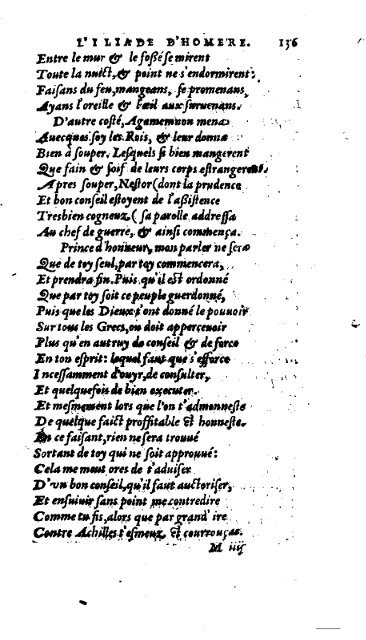 L'ILIADE D'HOMERE. 136
Entre le mur & le foßé se mirent
Toute la nuict, & point ne s'endormirent:
Faisans du feu, mangeans, se promenans,
Ayans l'oreille & l'œil aux suruenans.
D'autre costé, Agamemnon mena
Auecques soy les Rois, & leur donna
Bien à souper. Lesquels si bien mangerent
Que fain & soif de leurs corps estrangerent.
Apres souper, Nestor (dont la prudence
Et bon conseil estoyent de l'aßistence
Tresbien cogneuz) sa parolle addressa
Au chef de guerre, & ainsi commença.
Prince d'honneur, mon parler ne sera
Que de toy seul, par toy commencera,
Et prendra fin. Puis qu'il est ordonné
Que par toy soit ce peuple guerdonné,
Puis que les Dieux t'ont donné le pouuoir
Sur tous les Grecs, on doit apperceuoir
Plus qu'en autruy de conseil & de force
En ton esprit: lequel faut que s'efforce
Incessamment d'ouyr, de consulter,
Et quelquefois de bien executer.
Et mesmement lors que l'on t'admonneste
De quelque faict proffitable & honneste.
En ce faisant, rien ne sera trouué
Sortant de toy qui ne soit approuué:
Cela me meut ores de t'aduiser
D'vn bon conseil, qu'il faut auctoriser,
Et ensuiuir sans point me contredire
Comme tu fis, alors que par grand' ire
Contre Achilles t'esmeuz, & courrouças.
M iiij